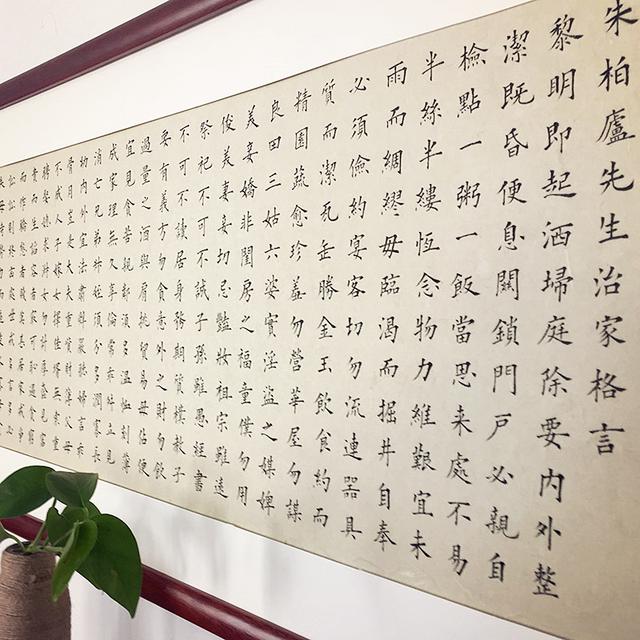 朱柏廬先生治家格言
黎明即起洒埽庭除要内外整
潔既昏便息關鎖門戶必親自
檢點一粥一飯當思来處不易
半絲半縷恆念物力維艱宜未
雨而綢繆毋臨渴而掘井自奉
必須儉約宴客切勿流連器具
質而潔瓦缶勝金玉飲食約而
精園蔬愈珍羞勿營華屋勿謀
良田三姑六婆實淫盜之媒婢
美妾嬌非閨房之福童僕勿用
俊美妻妾切忌豔妝祖宗雖遠
祭祀不可不誠子孫雖愚經書
不可不讀居身務期質樸教子
要有義方勿貪意外之財勿飲
過量之酒與肩挑貿易毋佔便
宜見貧苦親鄰須多溫恤刻薄
成家理無久享倫常乖舛立見
消亡兄弟叔姪須分多潤寡長
幼内外宜法肅辭嚴聽婦言乖
骨肉豈是丈夫重資財薄父母
不成人子嫁女擇佳壻毋索重
聘娶媳求淑女勿計厚奩見富
貴而生諂容者最可恥遇貧窮
而作驕態者賤莫甚居家戒爭